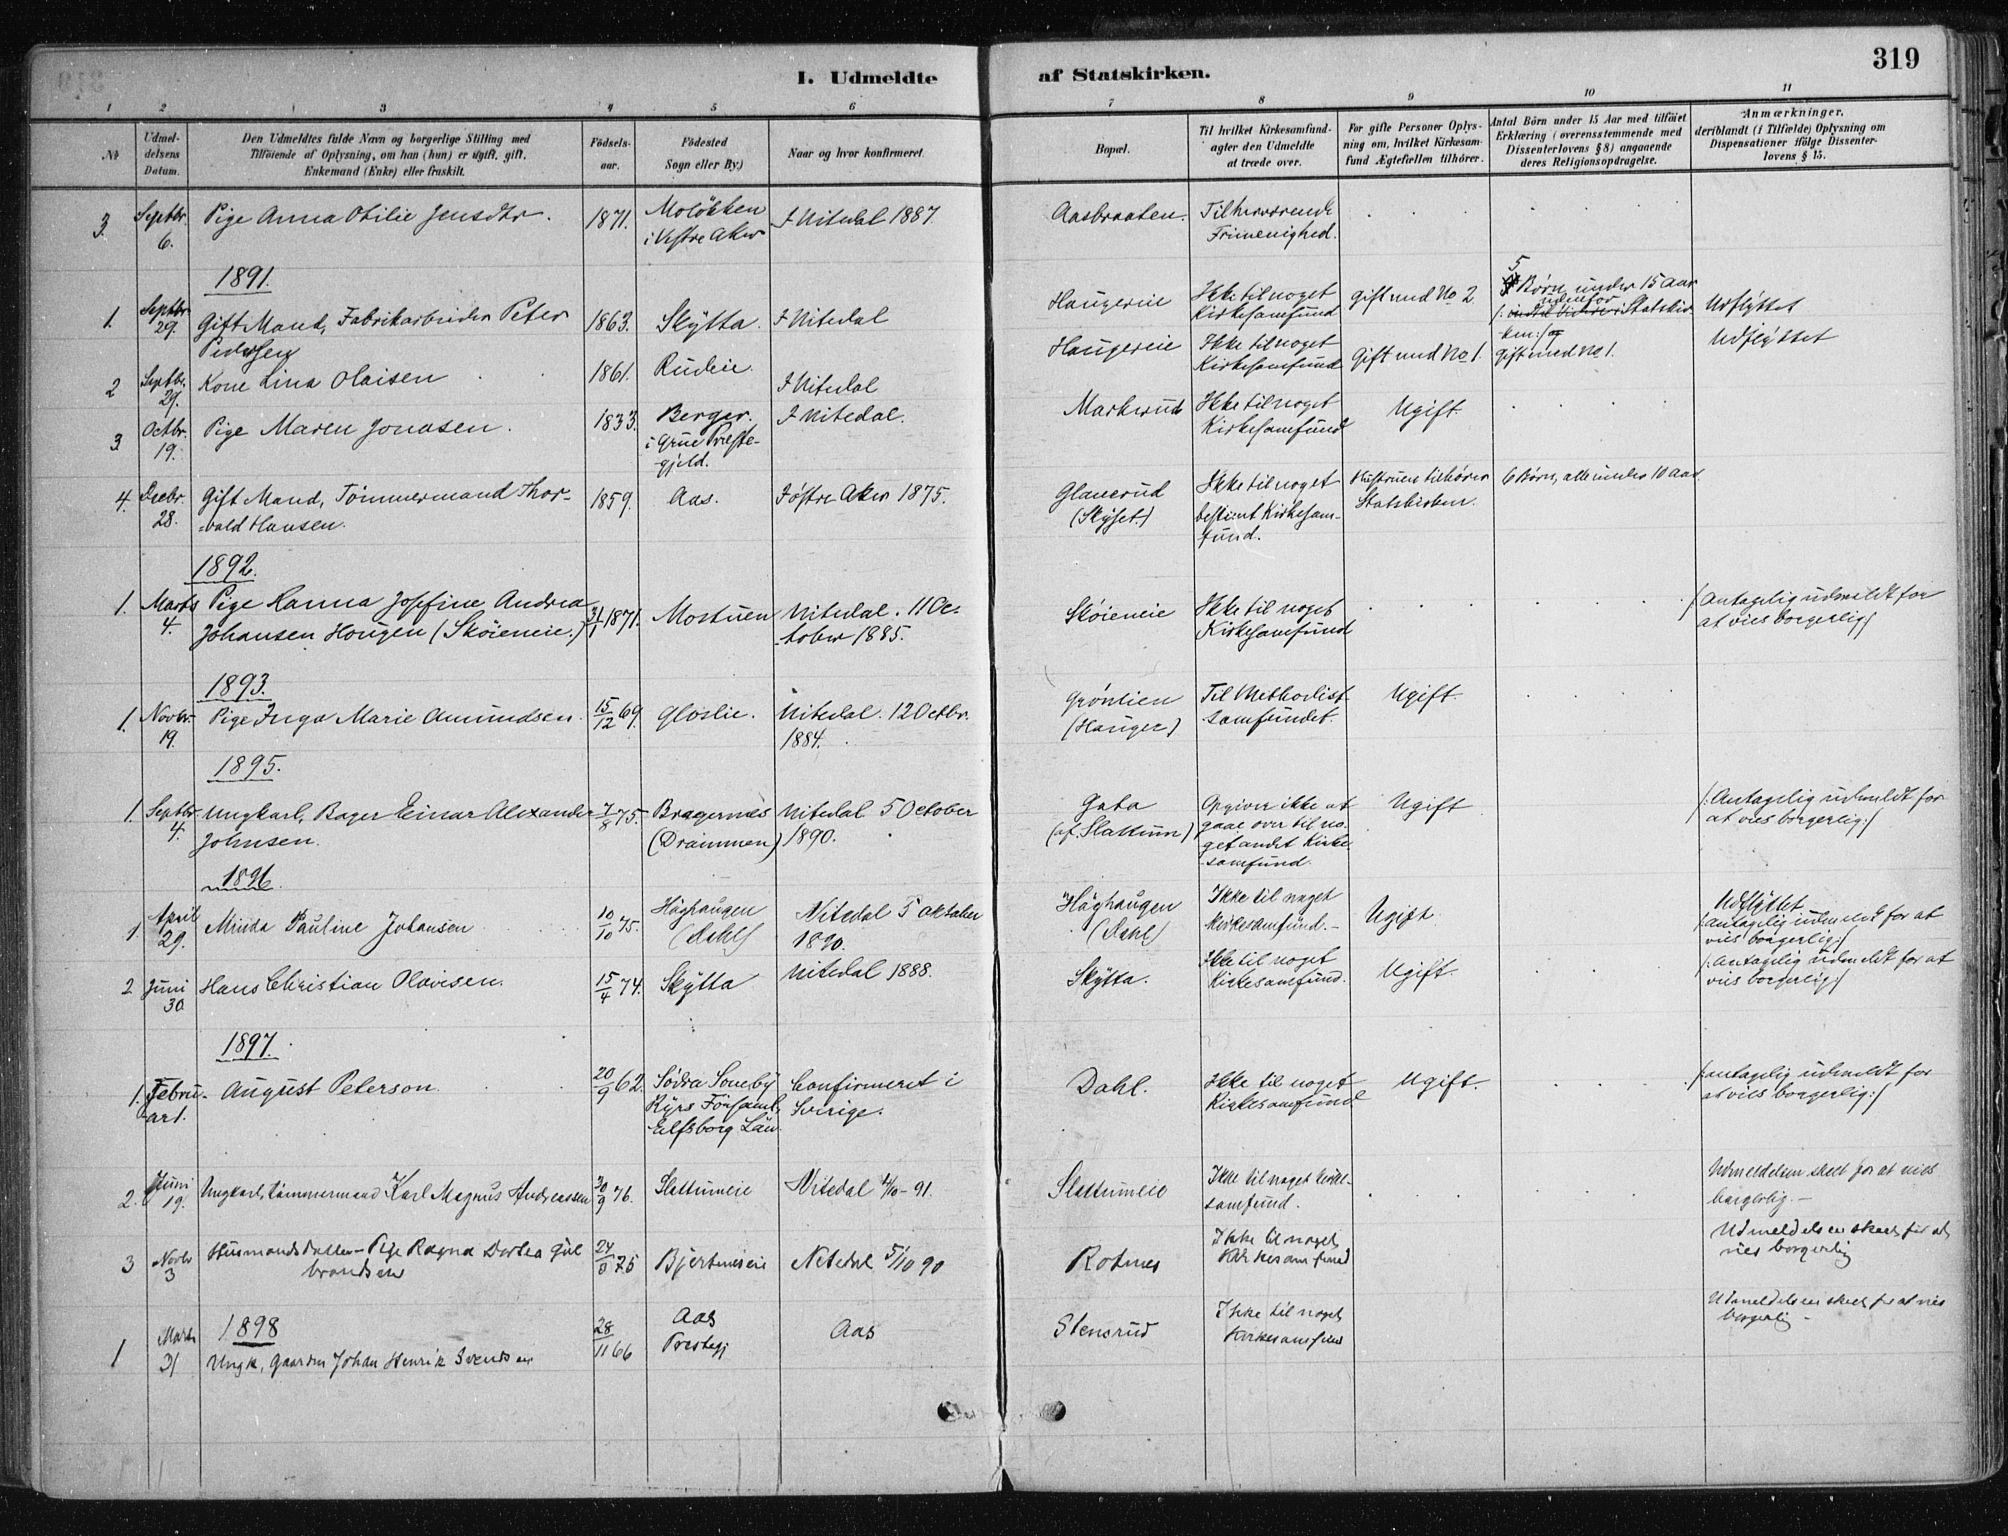 319
I. Udmeldte af Statskirken.
1 2 3 4 5 6 7 8 9 10 11
No
Udmeldelsens Datum.
Den Udmeldtes fulde Navn og borgerlige Stilling med
Tilföiende af Oplysning, om han (hun) er ugift, gift,
Enkemand (Enke) eller fraskilt.
Födselsaar.
Födested
Sogn eller By.)
Naar og hvor konfirmeret.
Bopæl.
Til hvilket Kirkesamfund
agter den Udmeldte
at træde over.
For gifte Personer Oplysning
om, hvilket Kirkesamfund
Ægtefællen tilhörer.
Antal Börn under 15 Aar med tilföiet
Erklæring (overensstemmende med
Dissenterlovens § 8) angaaende
deres Religionsopdragelse.
Anmærkninger,
deriblandt (i Tilfælde) Oplysning om
Dispensationer ifölge Dissenterlovens § 15.
3. Septbr. 6. Pige Anna Otilie Jensdtr. 1871. Moløkken i Vestre Aker I Nitedal 1887. Aasbraaten. Til herværende Frimenighed.
1891.
1. Septbr. 29. Gift Mand, Fabrikarbeider Peter Pedersen 1863. Skytta. I Nitedal Haugereie Ikke til noget Kirkesamfund Gift med No 2 5 Børn under 15 Aar udenfor Statskirken :/ og gift med No 1. Udflyttet
2 Septbr. 29. Kone Lina Olaisen 1861. Rudeie. I Nitedal Haugereie Ikke til noget Kirkesamfund Gift med No 1. Udflyttet
3 Octbr. 19. Pige Maren Jonasen. 1833. Berger. i Grue Præste-gjeld. I Nitedal. Markerud Ikke til noget Kirkesamfund Ugift
4. Decbr. 28. Gift Mand, Tømmermand Thor-vald Hansen. 1859. Aas. I Østre Aker 1875. Glanerud (Skyset.) Ikke til noget bestemt Kirkesam-fund. Hustruen tilhører Statskirken. 6 Børn, alle under 10 Aar
1892.
1. Marts 4. Pige Hanna Josefine Andrea Johansen Hougen (Skøieneie.) 31/1 1871. Mostuen Nitedal. 11 Oc-tober 1885. Skøieneie Ikke til noget Kirkesamfund /Antagelig udmeldt for at vies borgerlig/
1893.
1. Novbr. 19. Pige Inga Marie Amundsen. 15/12 69. Gloslie. Nitedal. 12 Octbr. 1884. Grønlien (Hauger) Til Methodist-samfundet. Ugift.
1895.
1. Septbr. 4. Ungkarl, Bager Einar Alexander Johnsen. 7/8 75. Bragernæs (Drammen) Nitedal 5 October 1890. Gata (af Slattum) Opgiver ikke at gaae over til no-get andet Kirke-samfund. Ugift /: Antagelig udmeldt for at vies borgerlig:/
1896.
1. April 29. Minda Pauline Johansen 10/10 75. Håghaugen (Dahl) Nitedal 5 oktober 1890. Håghaugen (Dahl) Ikke til noget Kirkesamfund. Ugift Udflyttet /: antagelig udmeldt for at vies borgerlig:/
2 Juni 30 Hans Christian Olavesen. 15/4 74. Skytta Nitedal 1888. Skytta. Ikke til noget Kirkesamfund. Ugift. /: Antagelig udmeldt for at vies borgerlig:/
1897.
1. Febru-ar 1. August Peterson. 20/9 62. Södra Soneby Confirmeret i Sverige. Elfsborg Län Dahl. Ikke til noget Kirkesamfund. Ugift. /: antagelig udmeldt for at vies borgerlig:/
2. Juni 19. Ungkarl, Tømmermand Karl Magnus Andreassen 20/9 76. Slattumeie Nitedal 4/10-91. Slattumeie Ikke til noget kirke-samfund. Udmeldelsen skeet for at vies borgerlig.-
3 Novbr 3 Husmandsdatter-Pige Ragna Dortea Gul brandsen 24/8 75 Bjertneseie Nitedal 5/10 90 Rotnes Ikke til noget Kirkesamfund Udmeldelsen skeet for at vies borgerlig
1898
1 Marts 31 Ungk, Gaardm Johan Henrik Svendsen 28/11 66 Aas Prestegj Aas Stensrud Ikke til noget Kirkesamfund Udmeldelsen skeet for at vies borgerlig -